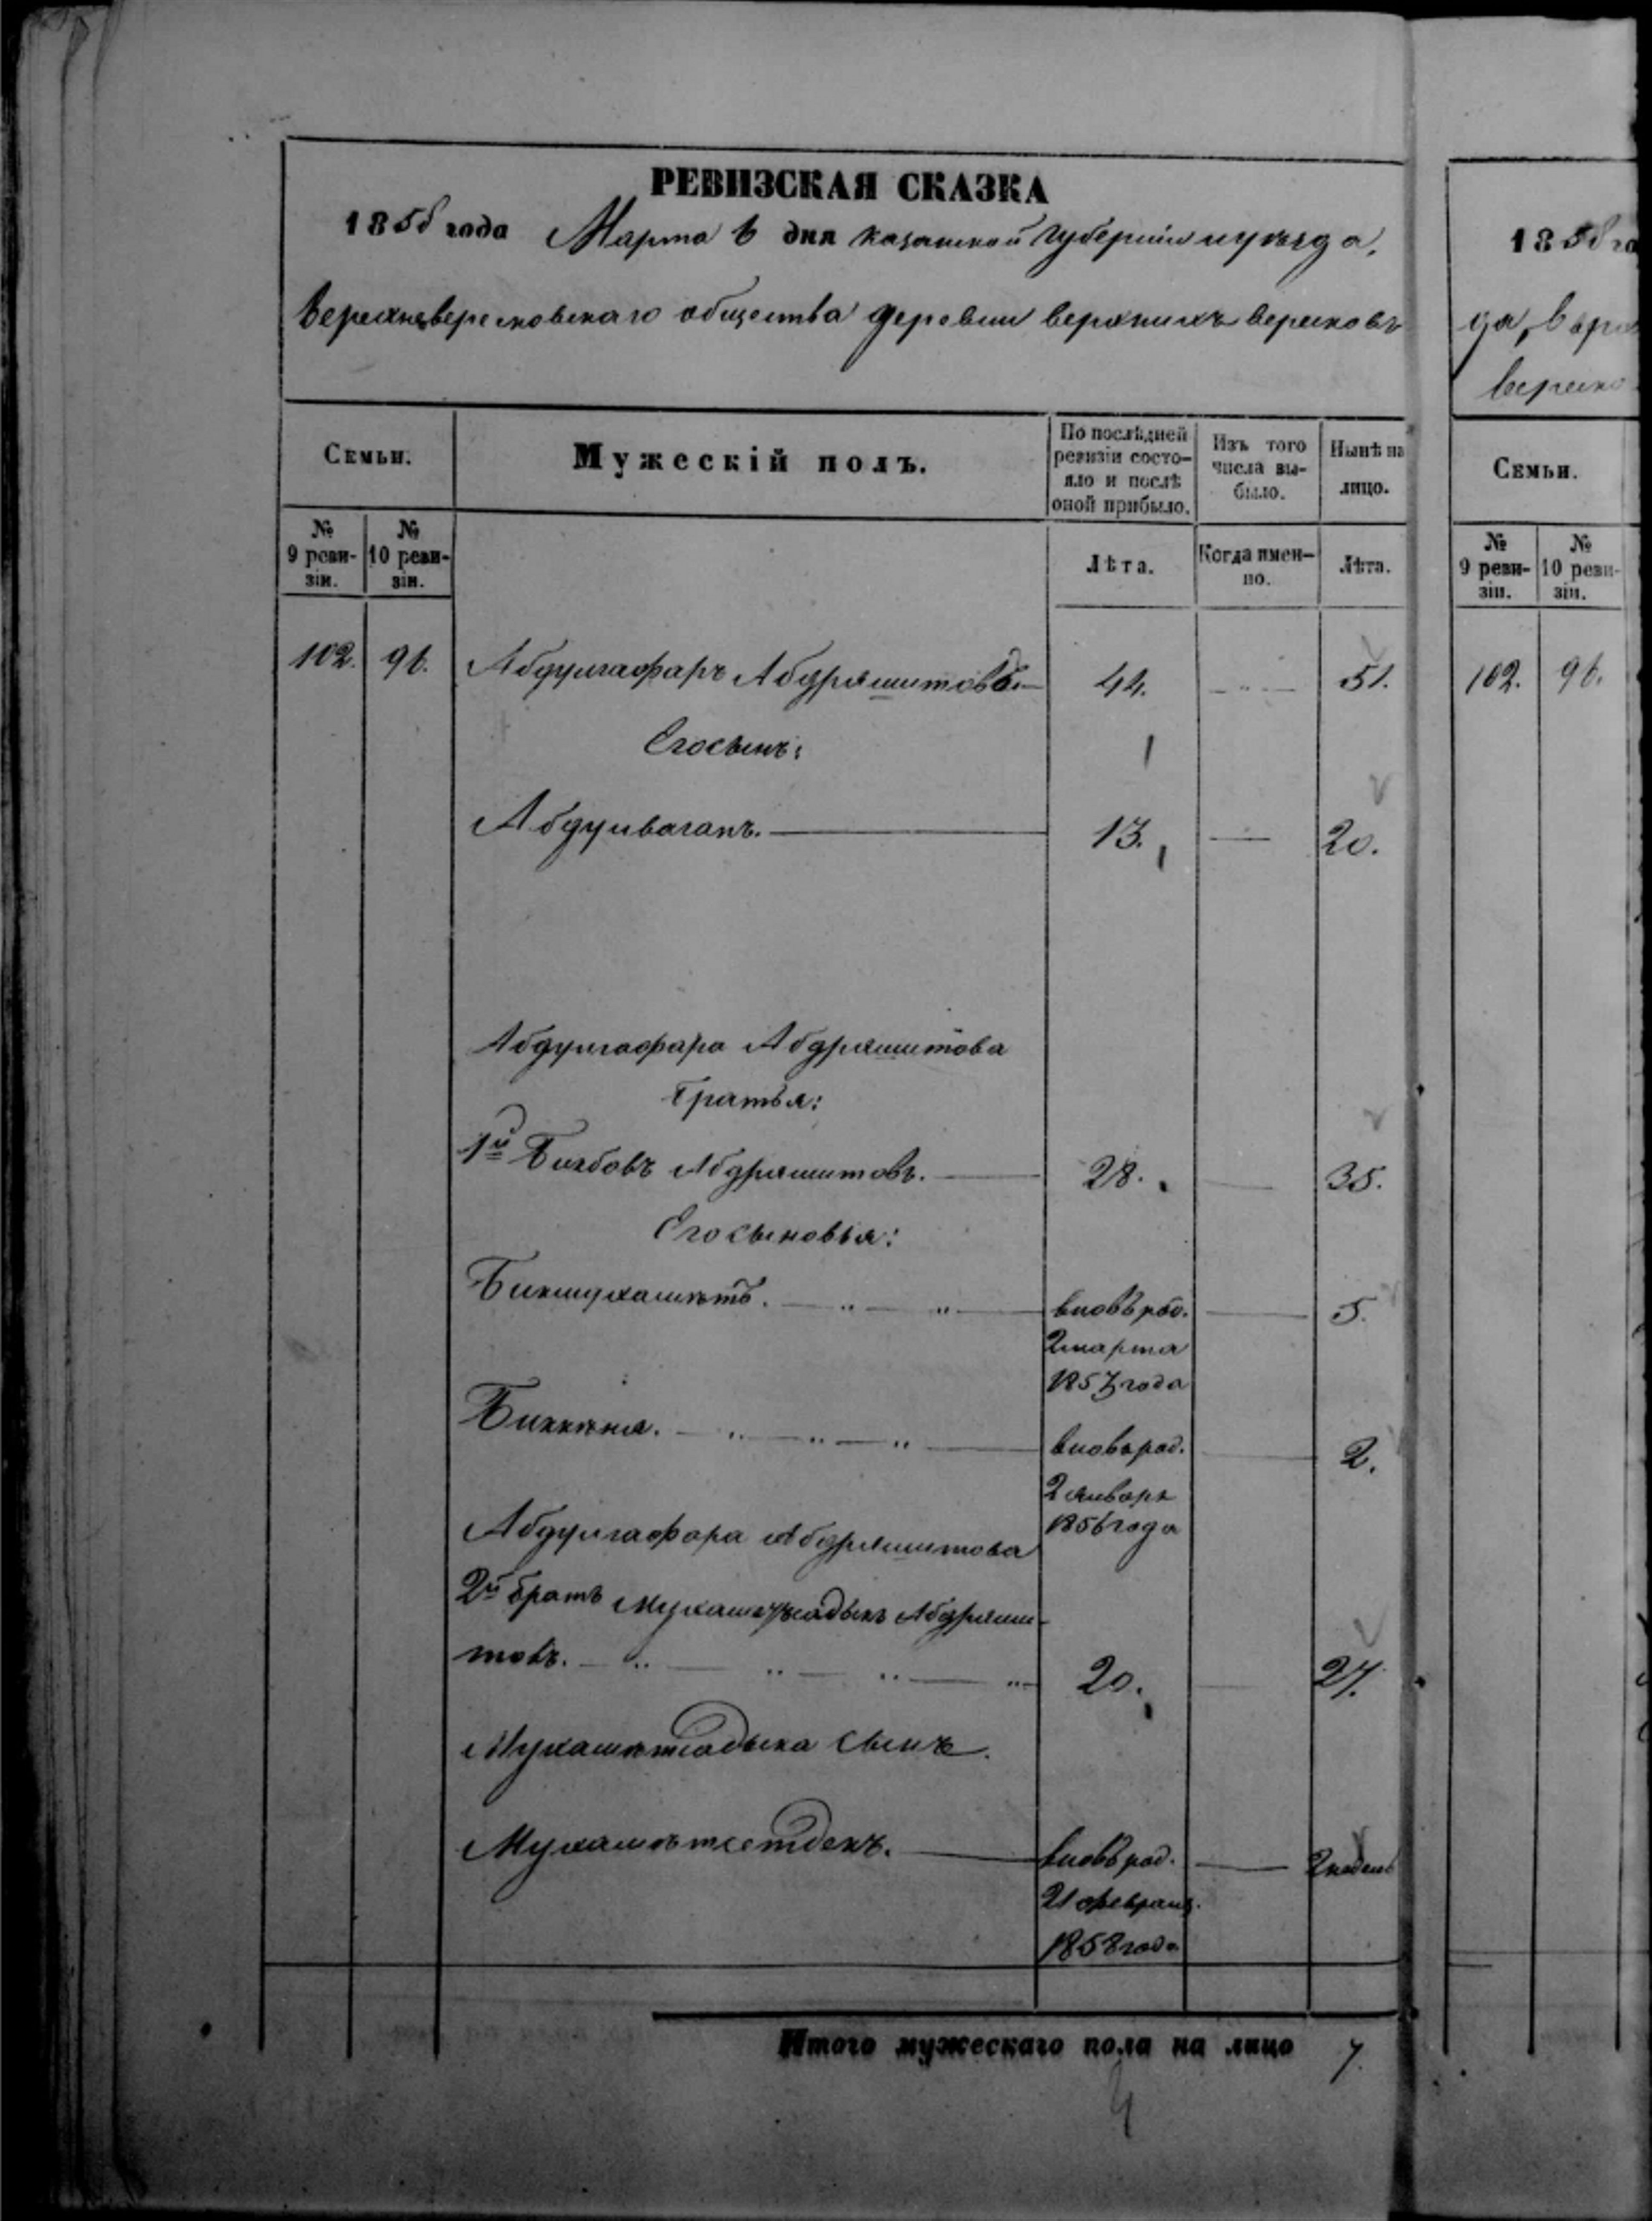 РЕВИЗСКАЯ СКАЗКА
1858 года Марта 6 дня Казанской губернии и уѣзда,
Верхневересковскаго общества деревни верхнихъ Вересковъ
Семьи.
Мужескій полъ.
По послѣдней ревизіи состо-
яло и послѣ оной прибыло.
Изъ того числа вы-
было.
Нынѣ на лицо.
№ 9 реви-
зіи.
№ 10 реви-
зіи.
Лѣта.
Когда имен-
но.
Лѣта.
102. 96. Абдулгафаръ Абдряшитовъ 44. 51.
Его сынъ: 1
Абдулвагапъ. 13. 20.
Абдулгафара Абдряшитова
братья:
1й Бикбовъ Абдряшитовъ. 28. 35.
Его сыновья:
Бикмухаметъ. вновь род. 5.
2 марта
1853 года
Биккиня. вновь род. 2.
2 января
1856 года
Абдулгафара Абдряшитова
2й братъ Мухаметсадыкъ Абдряши-
товъ. 20. 27.
Мухаметсадыка сынъ.
вновь род. 2 недель
21 февраля
1858 года
Итого мужескаго пола на лицо 7.
4
185
Семьи.
№ 9 реви-
зіи.
№ 10 реви-
зіи.
102. 96.